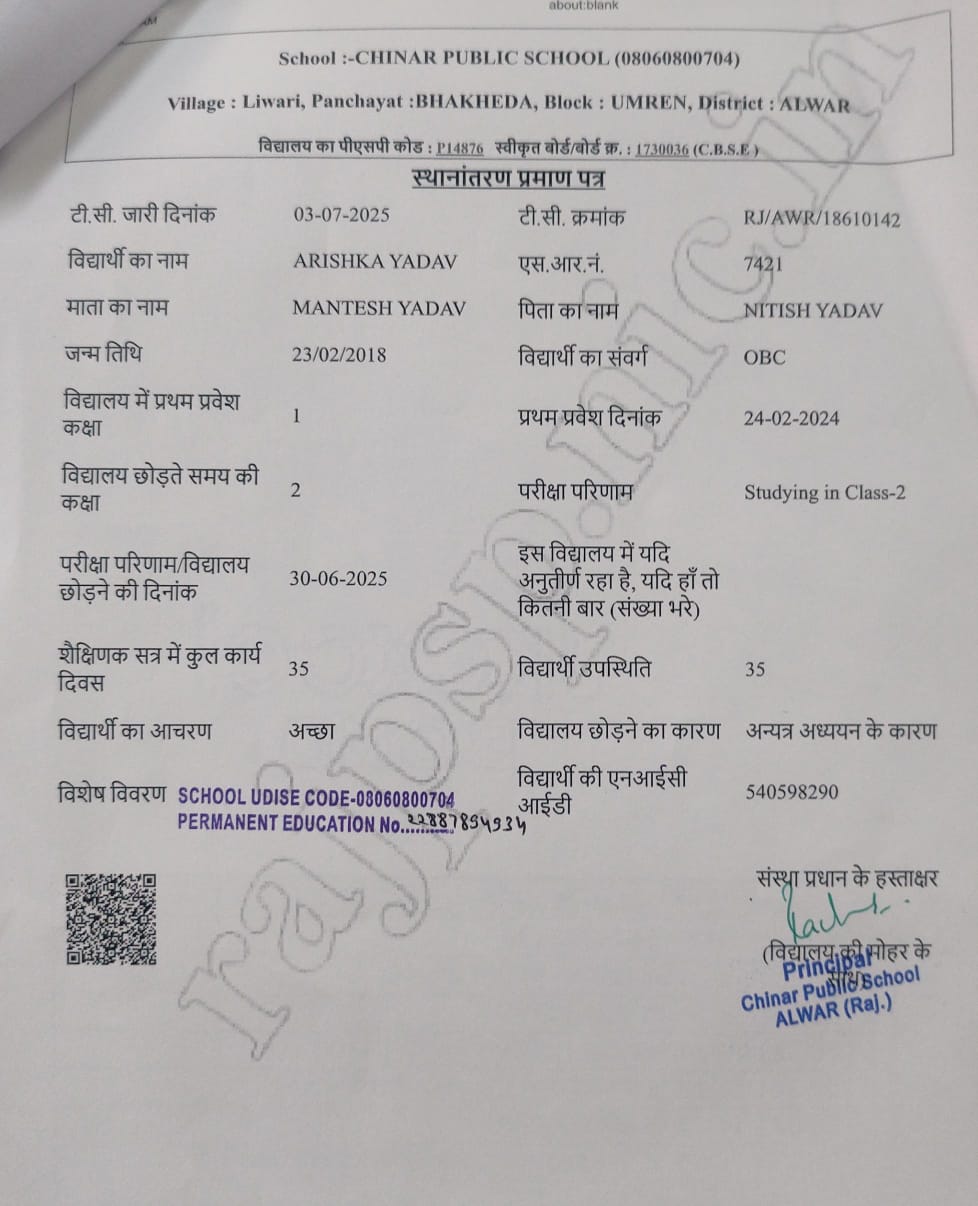 about:blank
AM
School :-CHINAR PUBLIC SCHOOL (08060800704)
Village : Liwari, Panchayat :BHAKHEDA, Block : UMREN, District : ALWAR
विद्यालय का पीएसपी कोड : P14876 स्वीकृत बोर्ड/बोर्ड क्र. : 1730036 (C.B.S.E )
स्थानांतरण प्रमाण पत्र
टी.सी. जारी दिनांक 03-07-2025 टी.सी. क्रमांक RJ/AWR/18610142
विद्यार्थी का नाम ARISHKA YADAV एस.आर.नं. 7421
माता का नाम MANTESH YADAV पिता का नाम NITISH YADAV
जन्म तिथि 23/02/2018 विद्यार्थी का संवर्ग OBC
विद्यालय में प्रथम प्रवेश
कक्षा 1 प्रथम प्रवेश दिनांक 24-02-2024
विद्यालय छोड़ते समय की
कक्षा 2 परीक्षा परिणाम Studying in Class-2
परीक्षा परिणाम/विद्यालय
छोड़ने की दिनांक 30-06-2025
इस विद्यालय में यदि
अनुतीर्ण रहा है, यदि हाँ तो
कितनी बार (संख्या भरे)
शैक्षिणक सत्र में कुल कार्य
दिवस 35 विद्यार्थी उपस्थिति 35
विद्यार्थी का आचरण अच्छा विद्यालय छोड़ने का कारण अन्यत्र अध्ययन के कारण
विशेष विवरण SCHOOL UDISE CODE-08060800704
PERMANENT EDUCATION No..........22887894934
विद्यार्थी की एनआईसी
आईडी 540598290
संस्था प्रधान के हस्ताक्षर
(विद्यालय की मोहर के
साथ)
Principal
Chinar Public School
ALWAR (Raj.)
rajpsp.nic.in